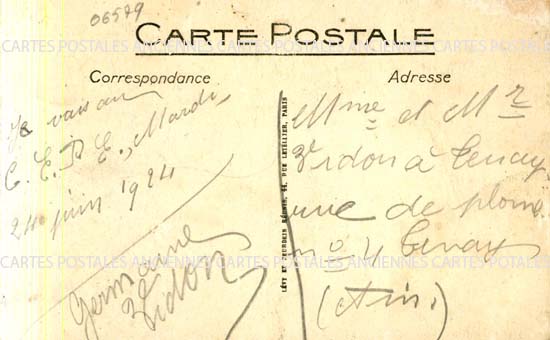 06579
CARTE POSTALE
Correspondance
Adresse
CARTES POSTALES ANCIENNES CARTES POSTALES ANCIENNES
Je vais au
C. E. P. E., Mardi,
24 juin 1924
Germaine
Vidon
LÉVY ET NEURDEIN RÉUNIS, 44, RUE LETELLIER, PARIS
Mme et Mr
Vidon à Tenay
rue de plomb
no 4 Tenay
(Ain.)
CARTES POSTALES ANCIENNES CARTES POSTALES ANCIENNES